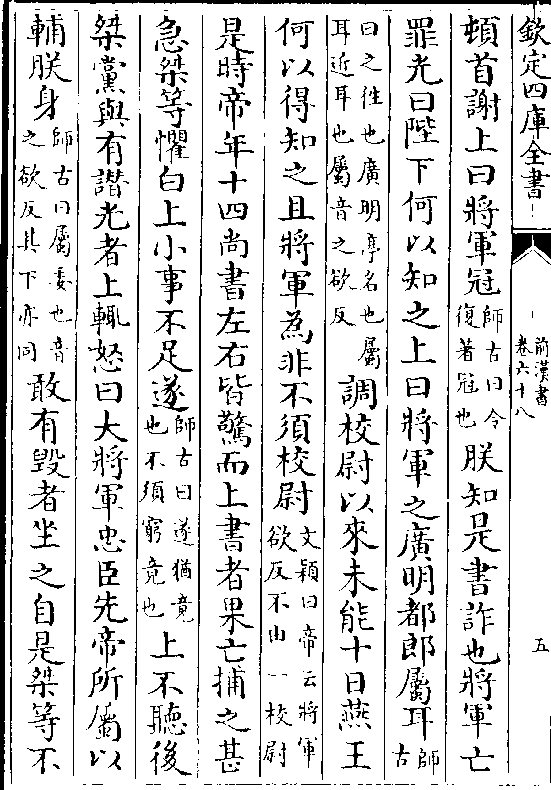 欽定四庫全書
前漢書
卷六十八
五
頓首謝上曰將軍冠師古曰令復著冠也朕知是書詐也將軍亡
罪光曰陛下何以知之上曰將軍之廣明都郎屬耳師古
曰之往也廣明亭名也屬耳近耳也屬音之欲反調校尉以來未能十日燕王
何以得知之且將軍為非不須校尉文穎曰帝云將軍欲反不由一校尉
是時帝年十四尚書左右皆驚而上書者果亡捕之甚
急桀等懼白上小事不足遂師古曰遂猶竟也不須窮竟也上不聽後
桀黨與有譖光者上輒怒曰大將軍忠臣先帝所屬以
輔朕身師古曰屬委也音之欲反其下亦同敢有毀者坐之自是桀等不